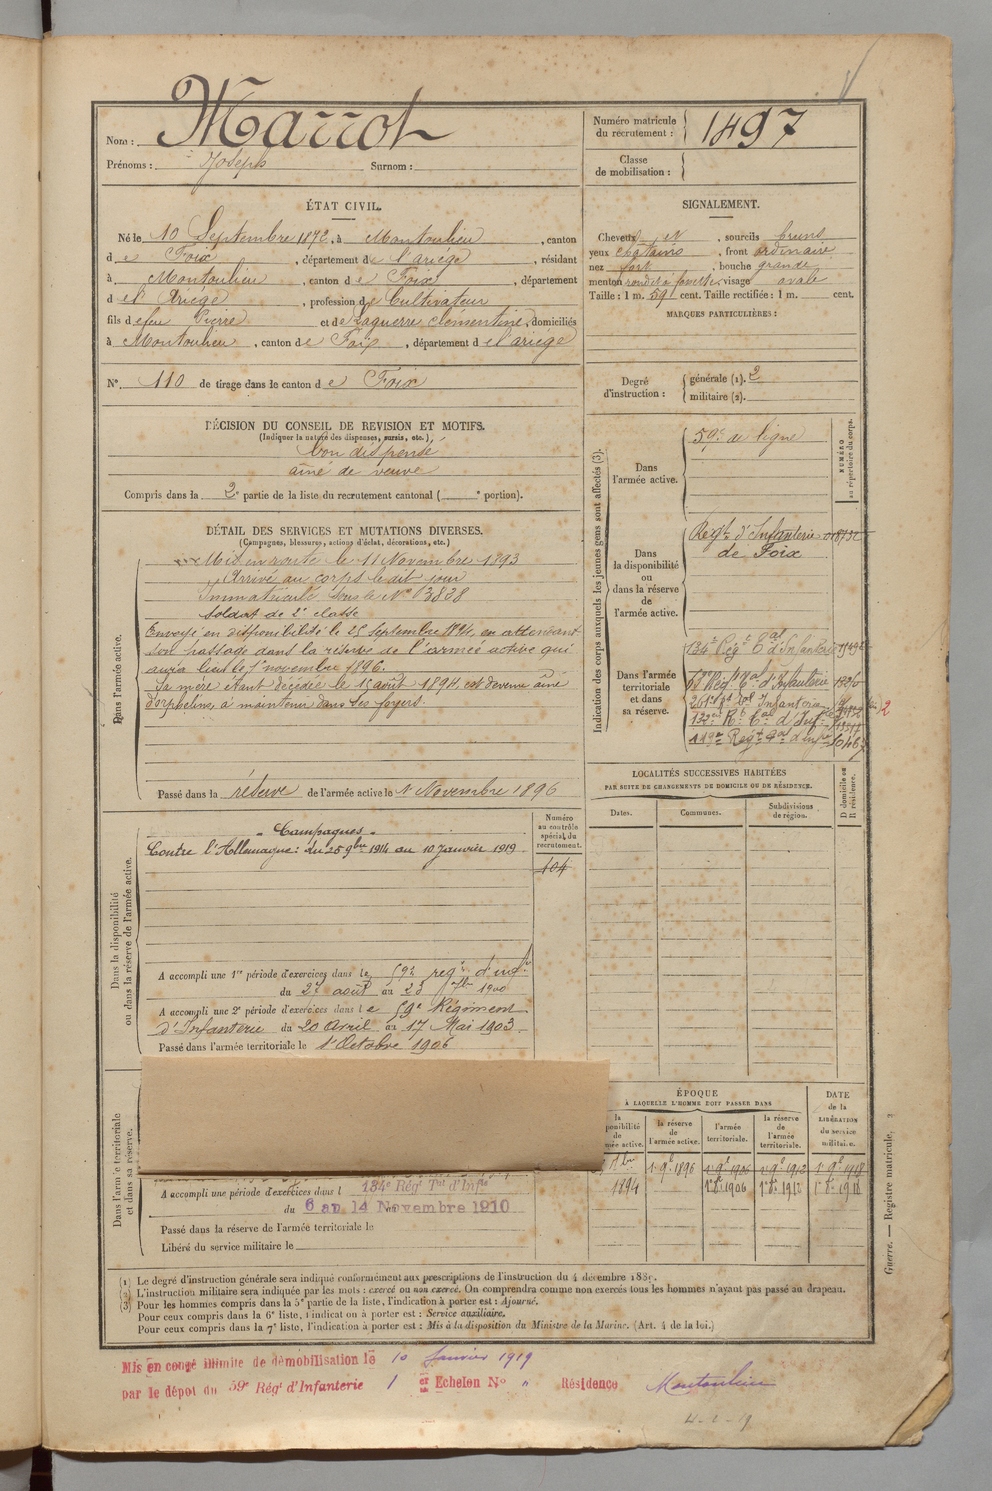 Nom : Marrot
Prénoms : Joseph Surnom :
Numéro matricule du recrutement : 1497
Classe de mobilisation :
ÉTAT CIVIL.
Né le 10 Septembre 1872, à Montoulieu, canton
d e Foix, département de l'ariège, résidant
à Montoulieu, canton de Foix, département
d el Ariège, profession de Cultivateur
fils de feu Pierre et de Laguerre Clémentine, domiciliés
à Montoulieu, canton de Foix, département d el'ariége
N° 110 de tirage dans le canton d e Foix
SIGNALEMENT.
Cheveux et, sourcils bruns
yeux chatains, front ordinaire
nez fort, bouche grande
menton rond et à fossette, visage ovale
Taille : 1 m. 591 cent. Taille rectifiée : 1 m. cent.
MARQUES PARTICULIÈRES :
Degré d'instruction : générale (1). 2
militaire (2).
DÉCISION DU CONSEIL DE REVISION ET MOTIFS.
(Indiquer la nature des dispenses, sursis, etc.)
bon dispensé
ainé de veuve
Compris dans la 2e partie de la liste du recrutement cantonal ( e portion).
DÉTAIL DES SERVICES ET MUTATIONS DIVERSES.
(Campagnes, blessures, actions d'éclat, décorations, etc.)
Dans l'armée active.
Mis en route le 11 Novembre 1893
Arrivé au corps le dit jour
Immatriculé sous le N° 3838
Soldat de 2e classe
Envoyé en disponibilité le 25 Septembre 1894, en attendant
son passage dans la réserve de l'armée active qui
aura lieu le 1er novembre 1896.
Sa mère étant décédée le 15 août 1894, est devenu ainé
d'orphelins, à maintenir dans ses foyers.
Passé dans la réserve de l'armée active le 1 Novembre 1896
Indication des corps auxquels les jeunes gens sont affectés (3).
NUMÉRO au répertoire du corps.
Dans l'armée active.
59e de ligne
Dans la disponibilité ou dans la réserve de l'armée active.
Regt d'Infanterie
de Foix
Dans l'armée territoriale et dans sa réserve.
134e Régt Tal d'Infanterie
Regt Tal d'Infanterie
132e Rt Tal d'Infie
119e Regt Tal d'infie
LOCALITÉS SUCCESSIVES HABITÉES
PAR SUITE DE CHANGEMENTS DE DOMICILE OU DE RÉSIDENCE.
D domicile ou R résidence.
Dates. Communes. Subdivisions de région.
Dans la disponibilité ou dans la réserve de l'armée active.
Numéro au contrôle spécial du recrutement.
104
Campagnes
Contre l'Allemagne : du 25 9bre 1914 au 10 Janvier 1919
A accompli une 1re période d'exercices dans le 59e regt d'inf.
du 27 août au 23 7bre 1900
A accompli une 2e période d'exercices dans le 59e Régiment
d'Infanterie du 20 Avril au 17 Mai 1903
Passé dans l'armée territoriale le 1er Octobre 1906
Dans l'armée territoriale et dans sa réserve.
A accompli une période d'exercices dans l 134e Régt Tal d'Infie
du 6 au 14 Novembre 1910
Passé dans la réserve de l'armée territoriale le
Libéré du service militaire le
ÉPOQUE
À LAQUELLE L'HOMME DOIT PASSER DANS
la réserve de l'armée active. l'armée territoriale. la réserve de l'armée territoriale.
DATE de la LIBÉRATION du service militaire.
1894
(1) Le degré d'instruction générale sera indiqué conformément aux prescriptions de l'instruction du 4 décembre 1889.
(2) L'instruction militaire sera indiquée par les mots : exercé ou non exercé. On comprendra comme non exercés tous les hommes n'ayant pas passé au drapeau.
(3) Pour les hommes compris dans la 5e partie de la liste, l'indication à porter est : Ajourné.
Pour ceux compris dans la 6e liste, l'indication à porter est : Service auxiliaire.
Pour ceux compris dans la 7e liste, l'indication à porter est : Mis à la disposition du Ministre de la Marine. (Art. 4 de la loi.)
Guerre. — Registre matricule,
Mis en congé illimité de démobilisation le 10 Janvier 1919
par le dépot du 59e Régt d'Infanterie 1er Echelon N° " Résidence Montoulieu